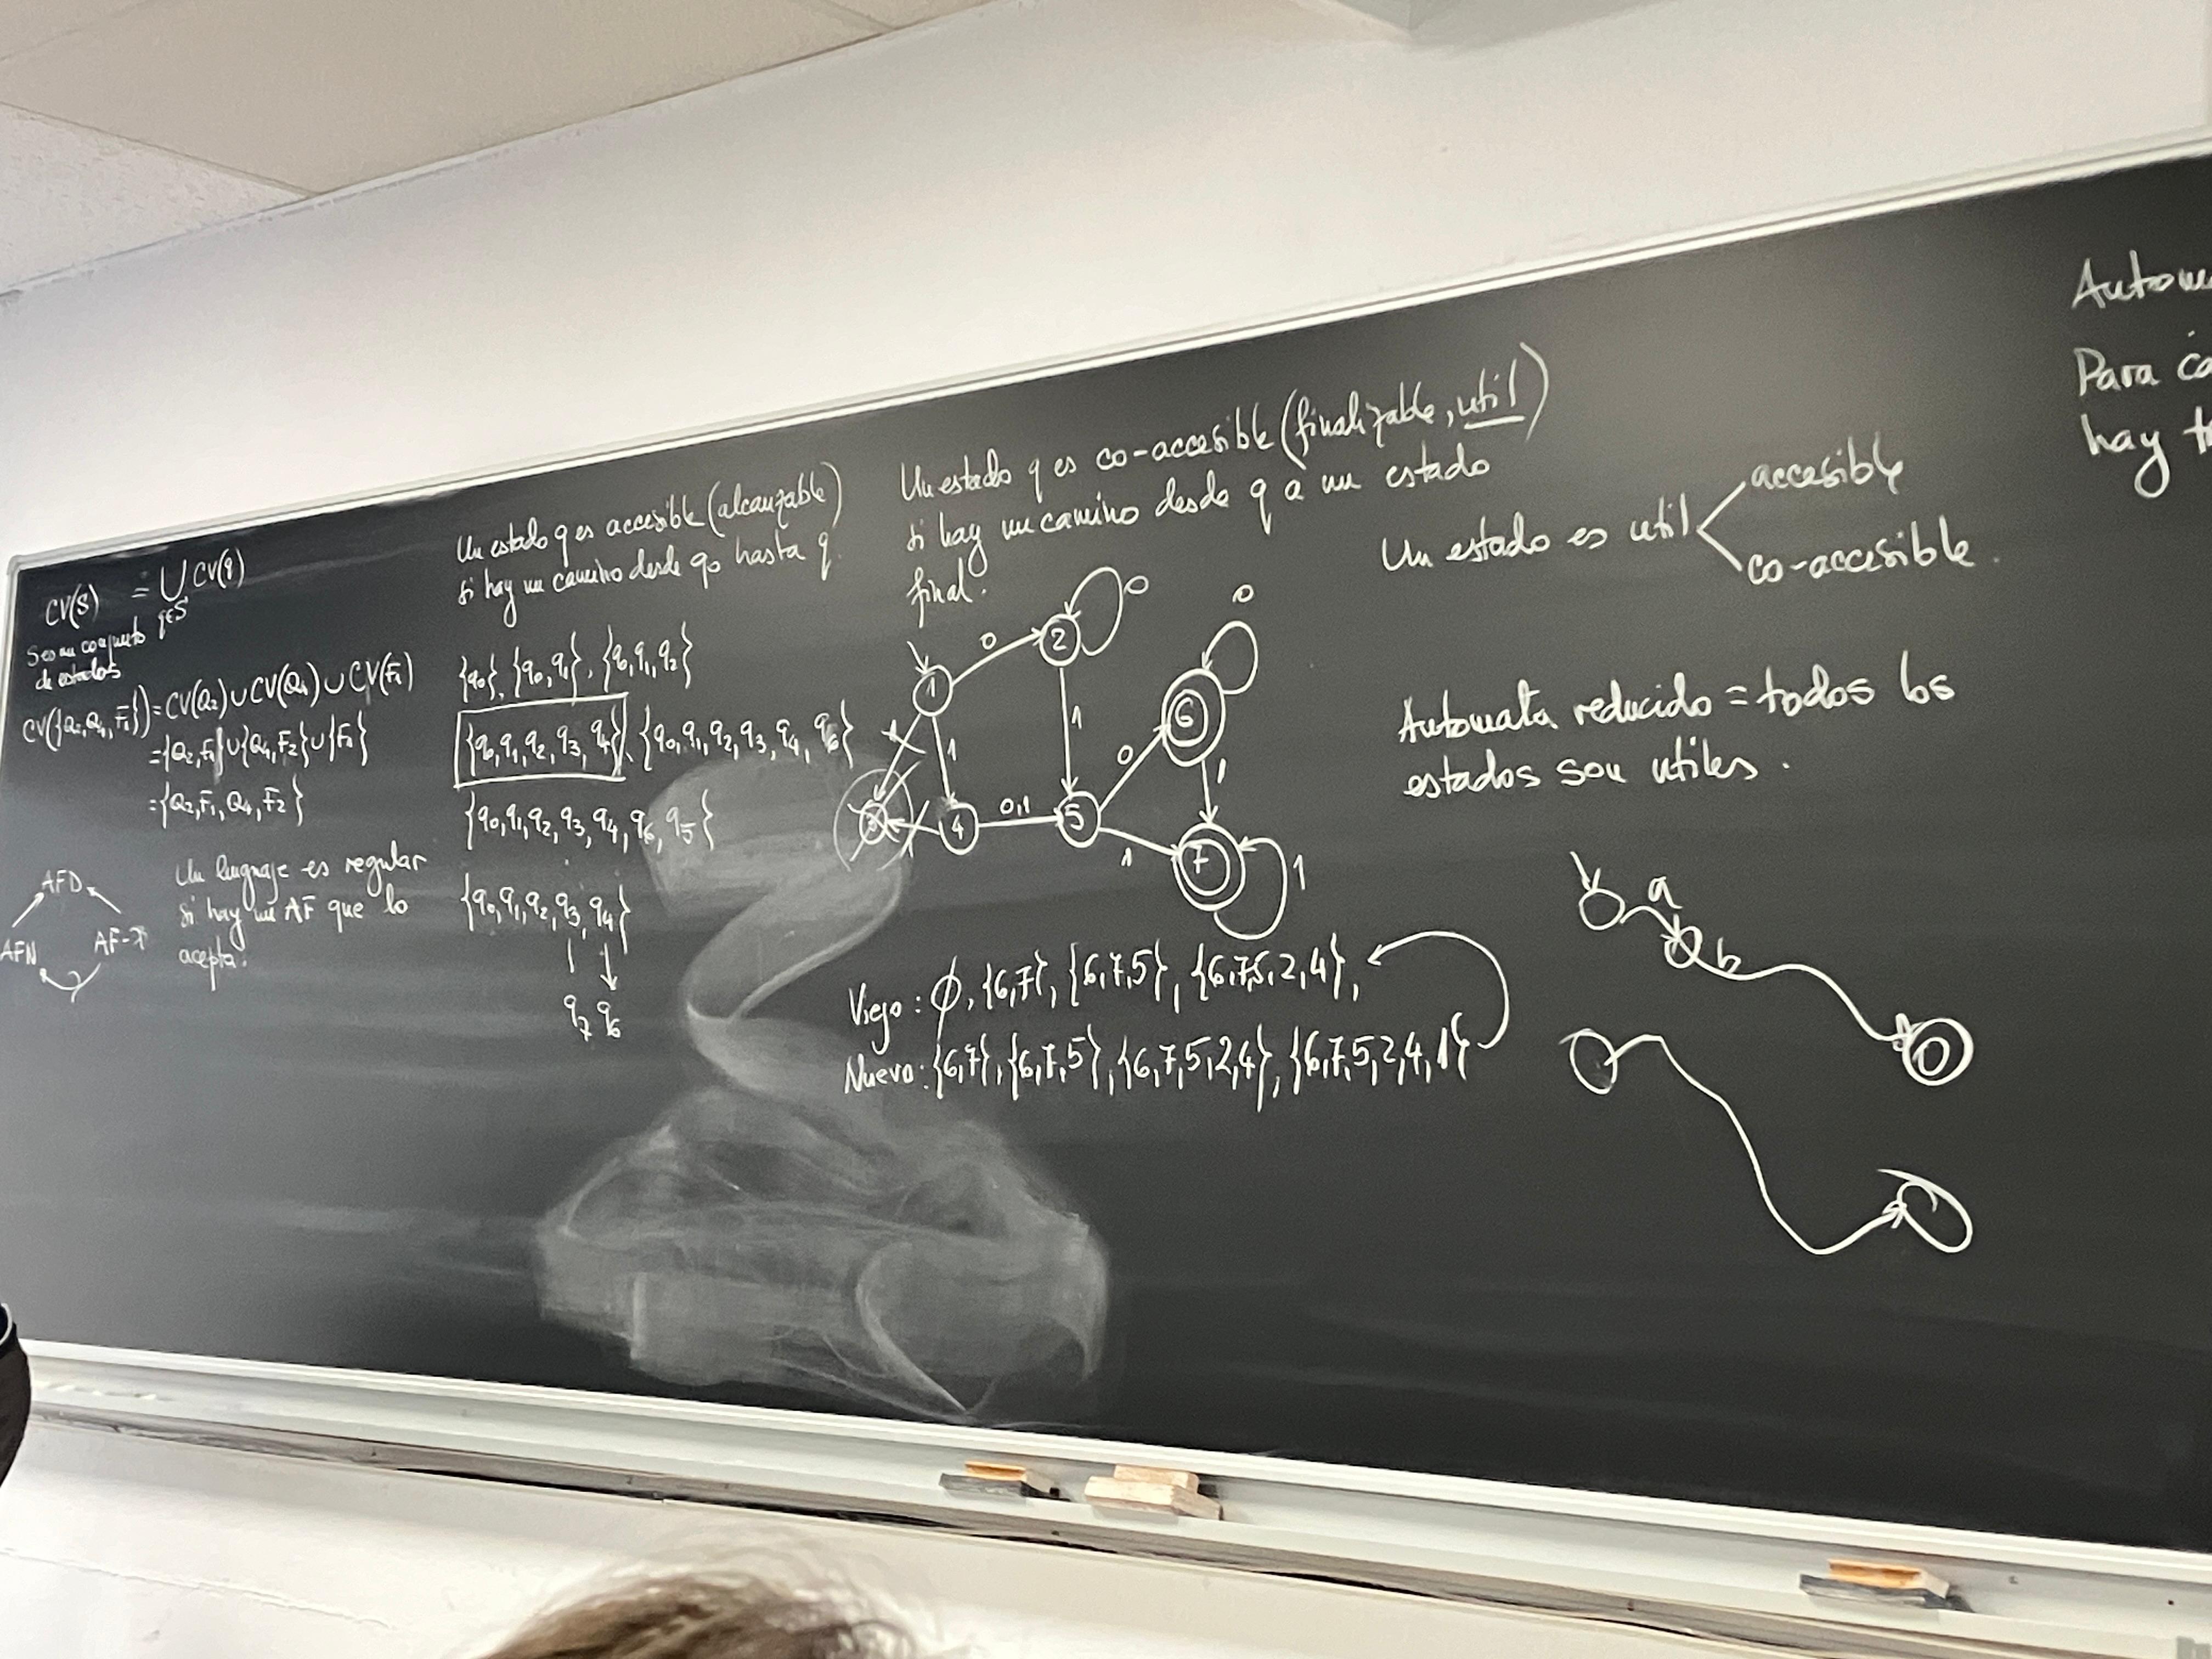 CV(S) = ∪ CV(q)
q∈S
S es un conjunto
de estados
CV({Q₂,Q₄,F₁}) = CV(Q₂) ∪ CV(Q₄) ∪ CV(F₁)
= {Q₂,F₁} ∪ {Q₄,F₂} ∪ {F₁}
= {Q₂,F₁,Q₄,F₂}
AFD
AFN
Un lenguaje es regular
si hay un AF que lo
acepta.
Un estado q es accesible (alcanzable)
si hay un camino desde q₀ hasta q.
{q₀}, {q₀,q₁}, {q₀,q₁,q₂}
{q₀,q₁,q₂,q₃,q₄}, {q₀,q₁,q₂,q₃,q₄,q₆}
{q₀,q₁,q₂,q₃,q₄,q₆,q₅}
{q₀,q₁,q₂,q₃,q₄}
q₇ q₆
Un estado q es co-accesible (finalizable, util)
si hay un camino desde q a un estado
final.
0
0
0
2
1
1
6
1
1
0
1
3
4
0,1
5
1
7
1
Viejo: ∅, {6,7}, {6,7,5}, {6,7,5,2,4},
Nuevo: {6,7}, {6,7,5}, {6,7,5,2,4}, {6,7,5,2,4,1}
Un estado es util
accesible
co-accesible.
Automata reducido = todos los
estados son utiles.
a
b
Para
hay